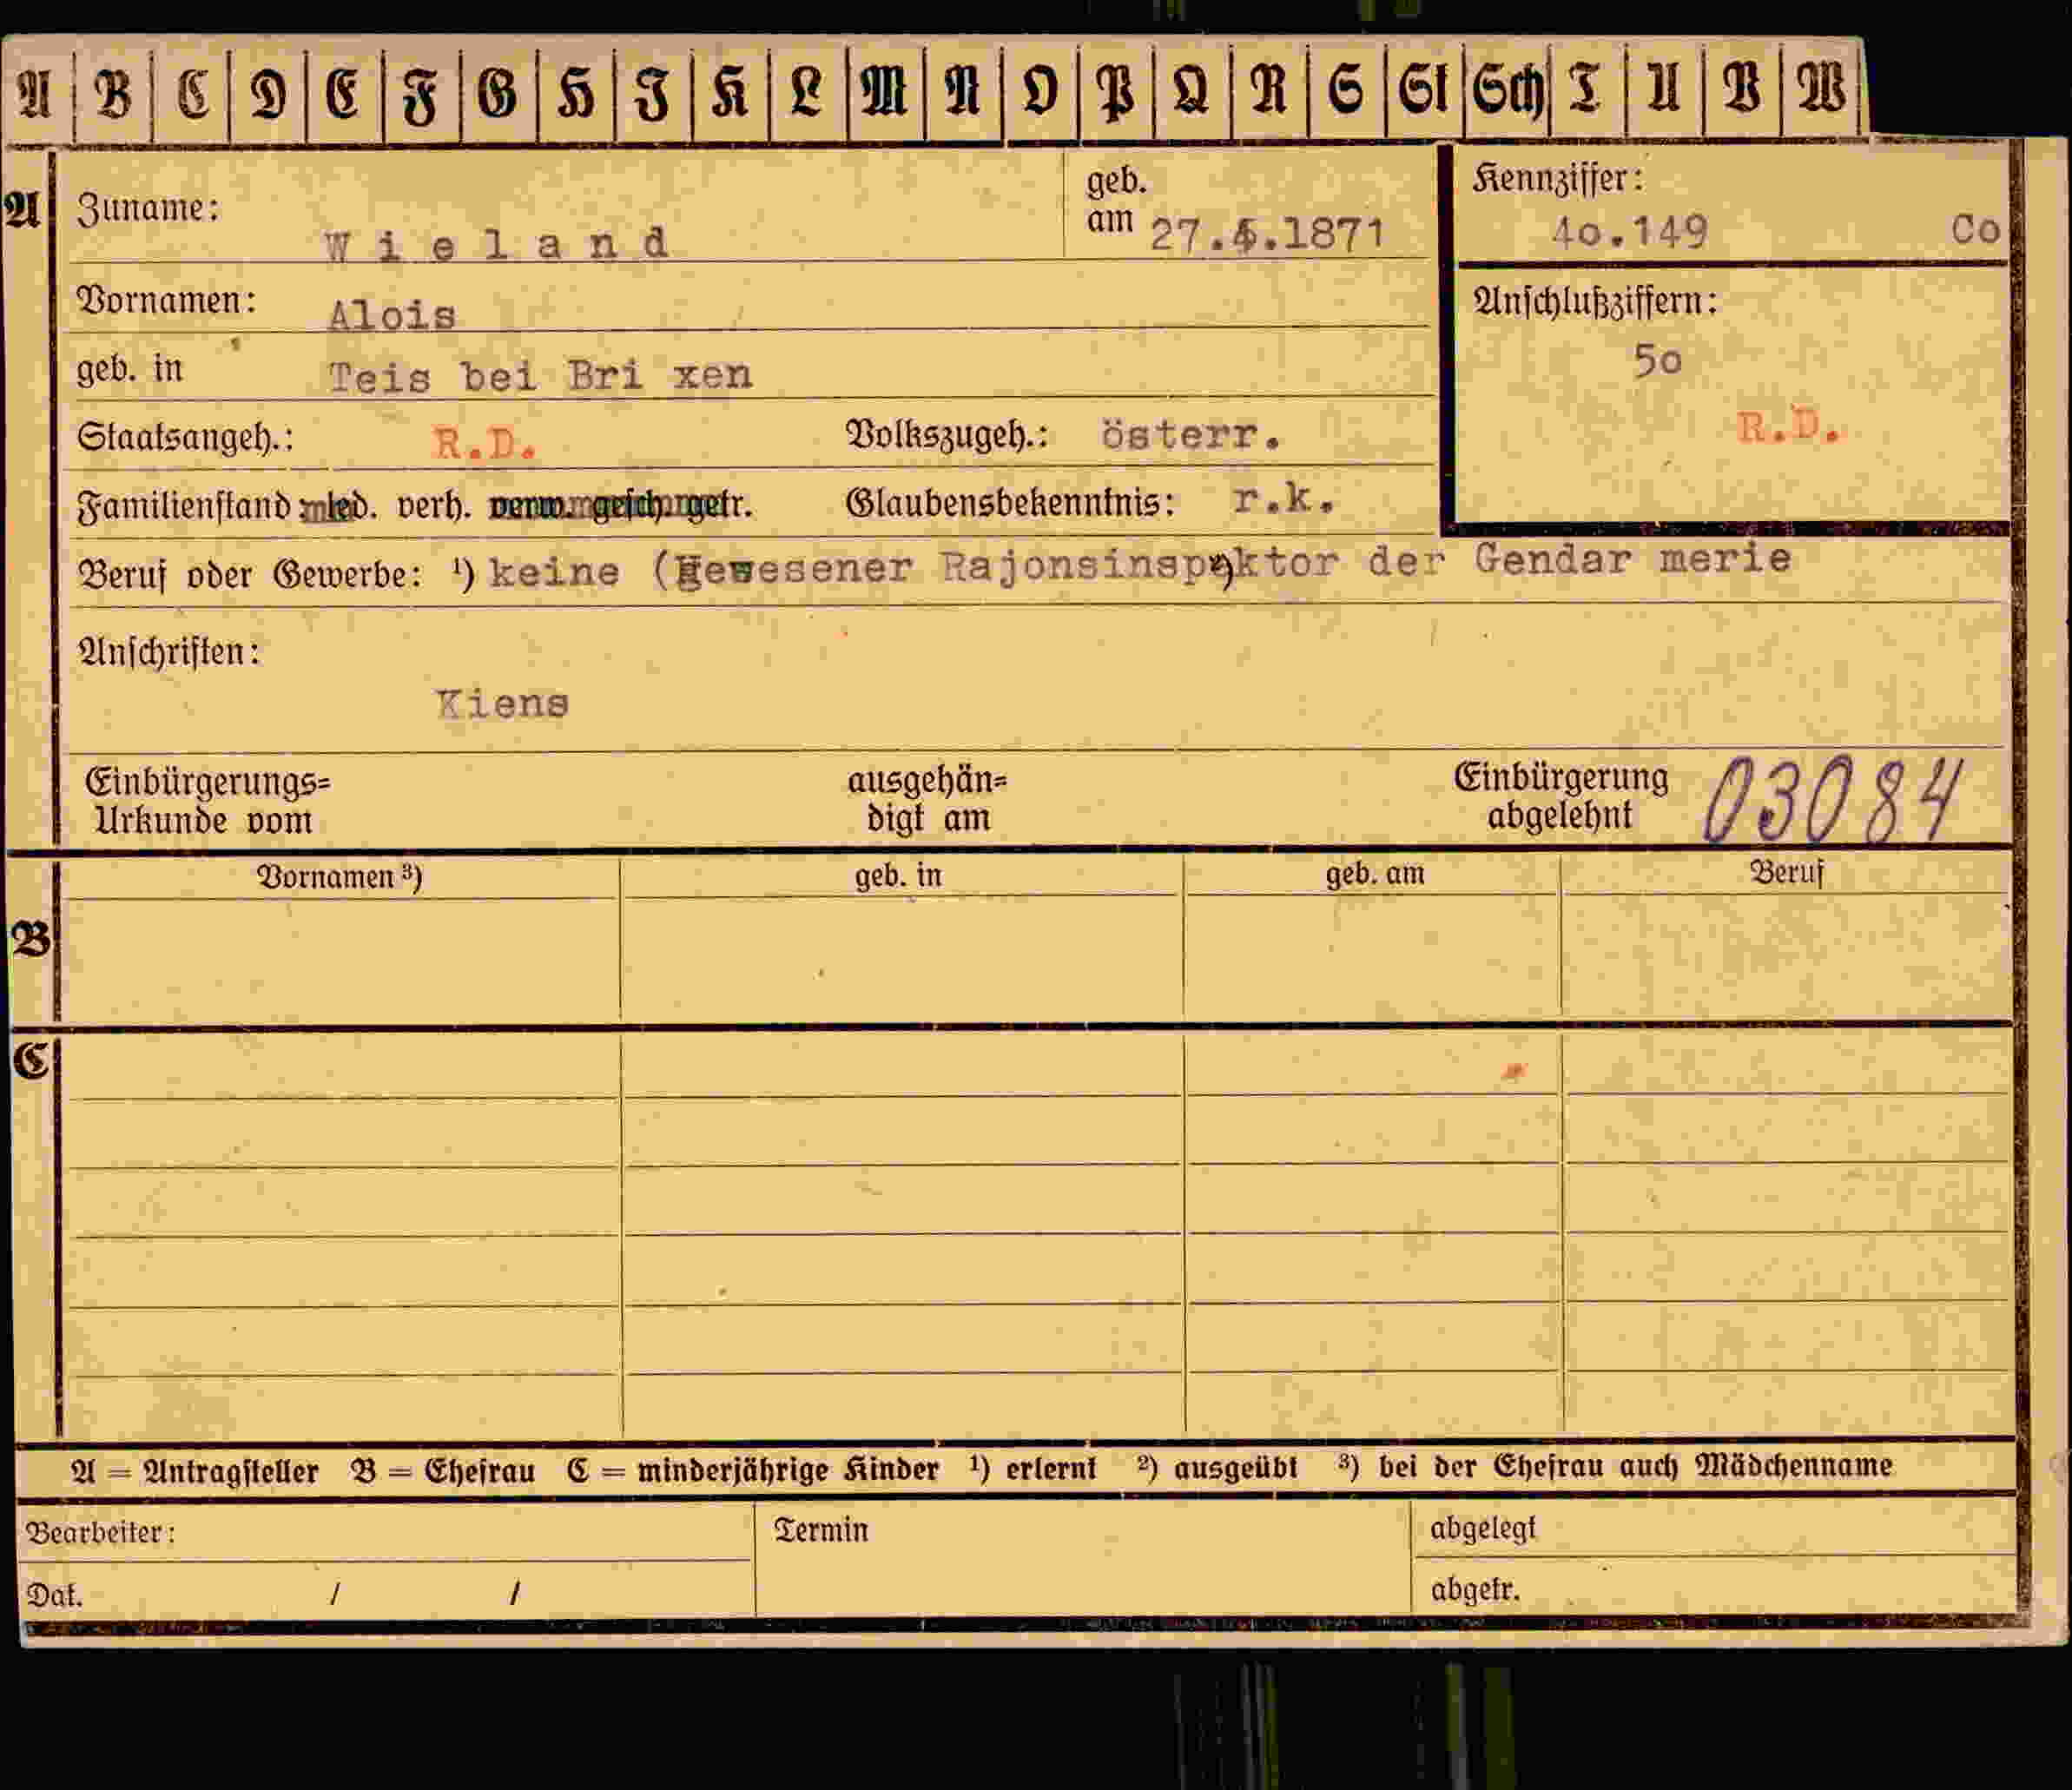 A B C D E F G H I K L M N O P Q R S St Sch T U V W
A Zuname: Wieland geb. am 27. .1871 Kennziffer: 4o.149 Co
Vornamen: Alois Anschlußziffern:
geb. in Teis bei Bri xen 5o
Staatsangeh.: R.D. Volkszugeh.: österr. R.D.
Familienstand led. verh. verw. gesch. getr. Glaubensbekenntnis: r.k.
Beruf oder Gewerbe: ¹) keine (Gewesener Rajonsinspektor der Gendar merie
Anschriften:
Kiens
Einbürgerungs= ausgehän= Einbürgerung 03084
Urkunde vom digt am abgelehnt
Vornamen ³) geb. in geb. am Beruf
B
C
A = Antragsteller B = Ehefrau C = minderjährige Kinder ¹) erlernt ²) ausgeübt ³) bei der Ehefrau auch Mädchenname
Bearbeiter: Termin abgelegt
Dat. / / abgetr.